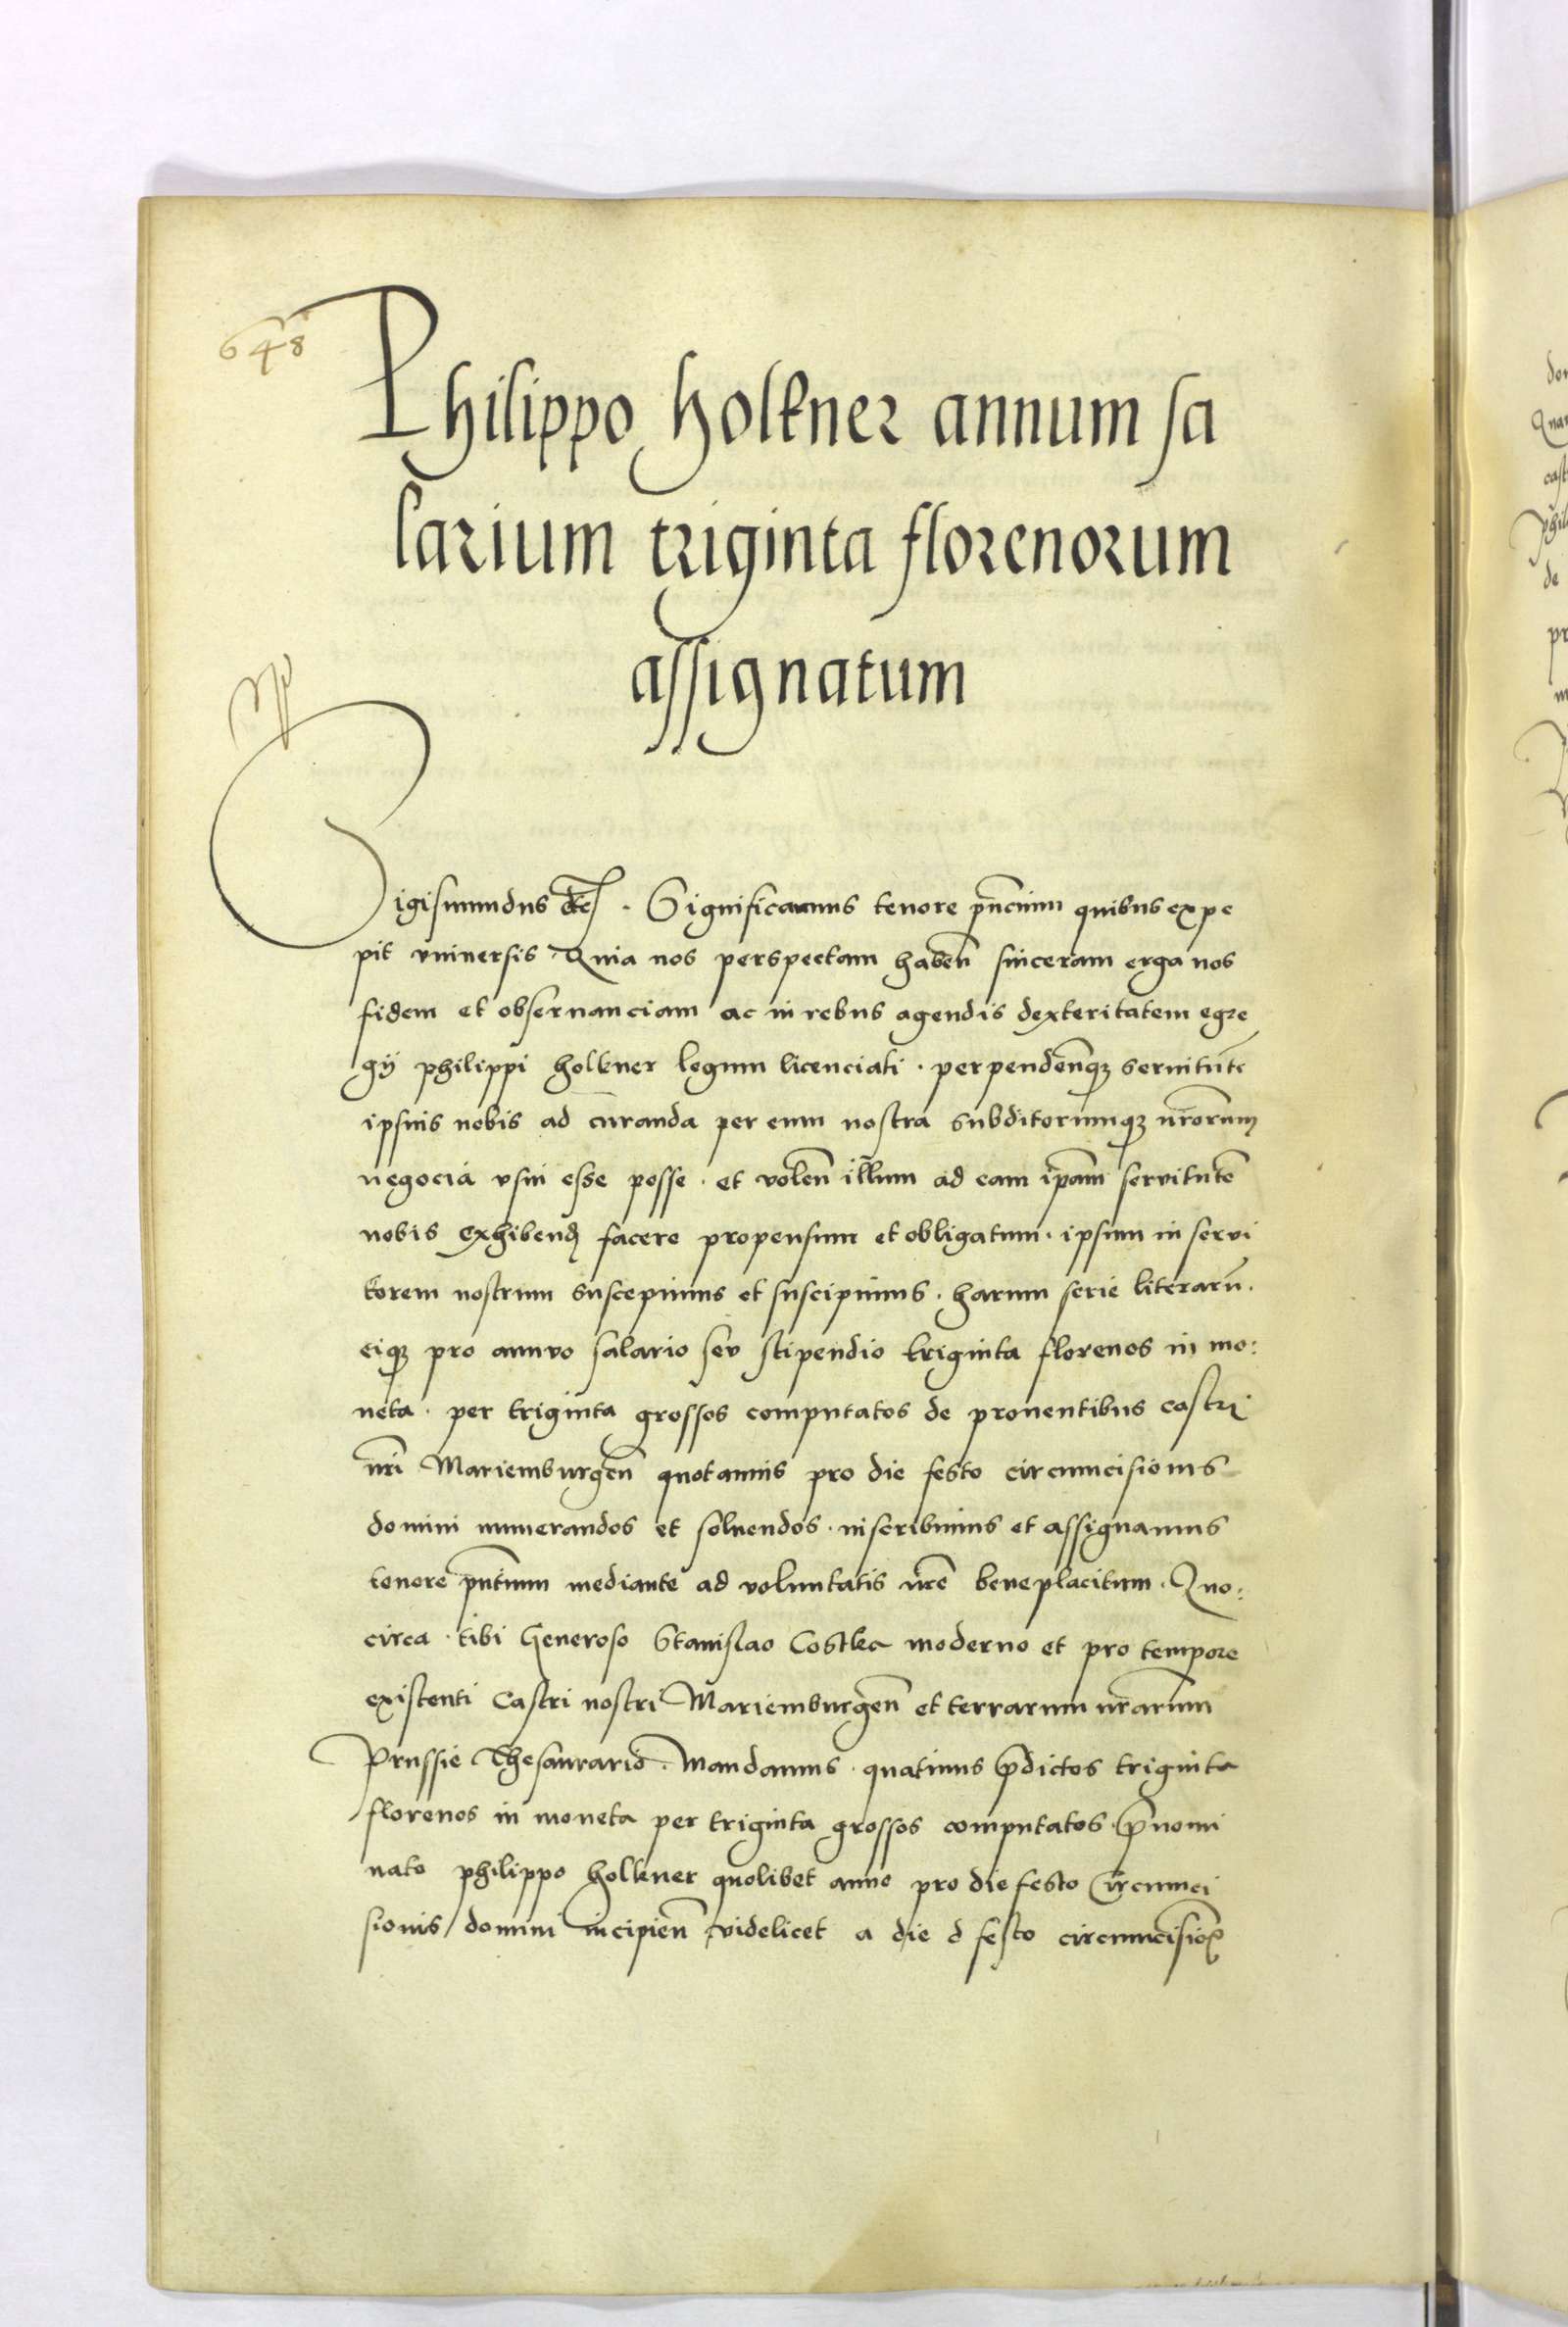 648
Philippo holkner annum sa
larium triginta florenorum
assignatum
Sigismundus etc. Significamus tenore pñcium quibus expe
pit vniuersis Quia nos perspectam habeñ sinceram erga nos
fidem et obseruanciam ac in rebus agendis dexteritatem egre
gÿ philippi holkner legum licenciati · perpendeñqʒ seruitute
ipsius nobis ad curanda per eum nostra subditorumqʒ nr̃orum
negocia vsui esse posse · et voleñ illum ad eam ip̃am servitutẽ
nobis exhibend facere propensum et obligatum · ipsum in servi
torem nostrum suscepimus et suscipimus · harum serie literarũ ·
eiqʒ pro annvo salario sev stipendio triginta florenos in mo:
neta · per triginta grossos computatos de prouentibus castri
nr̃i Mariemburgeñ quotannis pro die festo circumcisionis
domini numerandos et soluendos · inscribimus et assignamus
tenore pñtium mediante ad voluntatis nr̃e beneplacitum · Quo:
circa · tibi Generoso Stanislao Costka moderno et pro tempore
existenti Castri nostri Mariemburgeñ et terrarum nr̃arum
Prussie Thesaurario · Mandamus · quatinus p̃dictos triginta
florenos in moneta per triginta grossos computatos · p̃nomi
nato philippo holkner quolibet anno pro die festo Circumci
sionis domini incipieñ videlicet a die d festo circumcisioñ